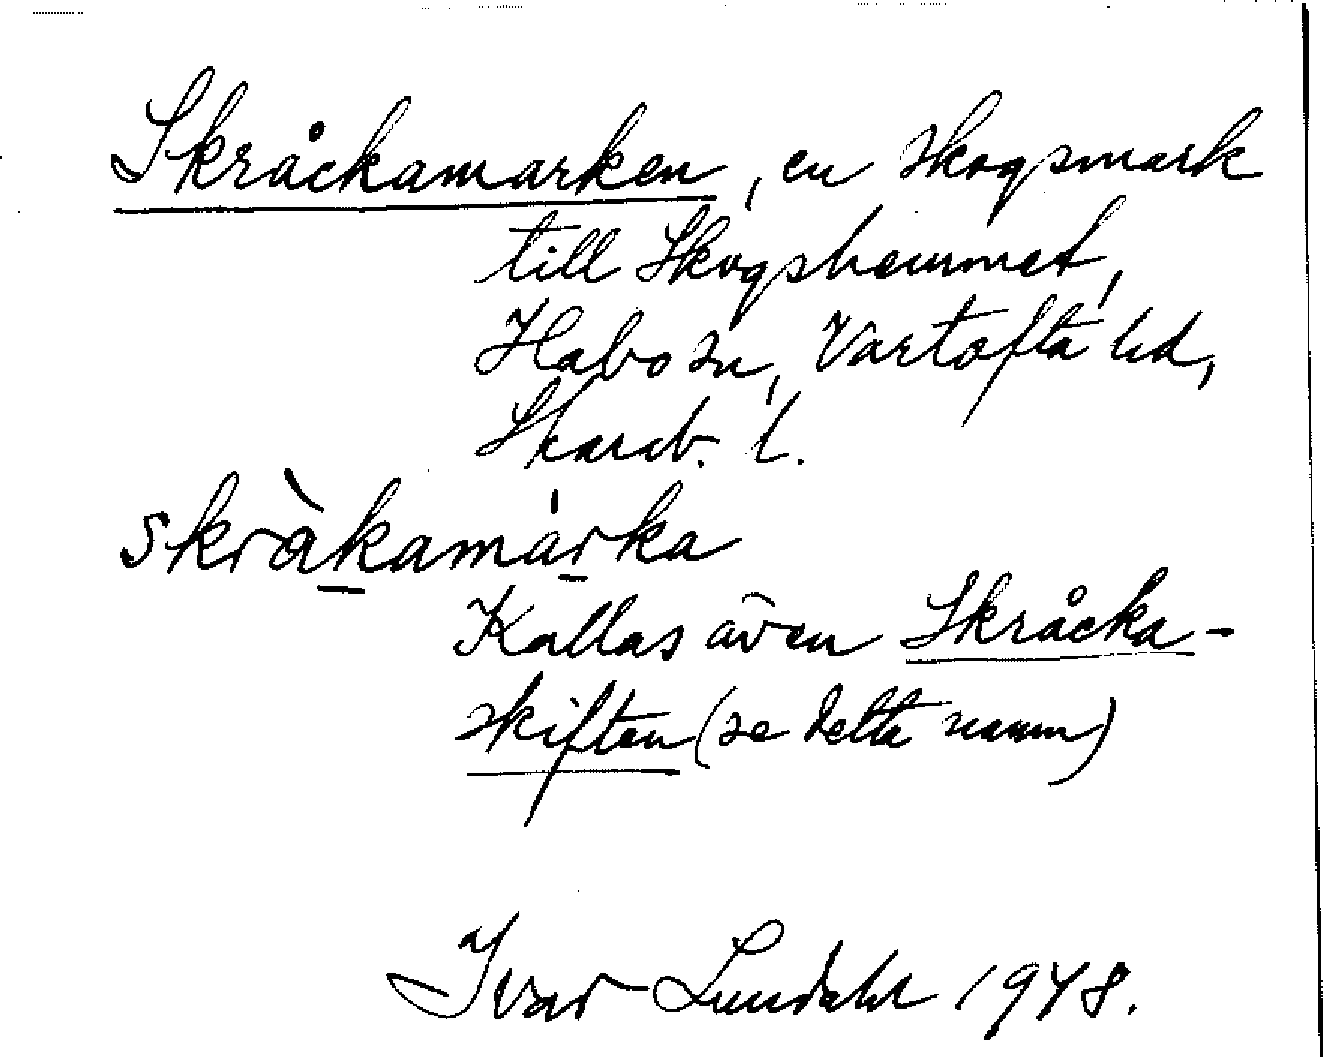 Skråckamarken, en skogsmark
till Skogshemmet,
Habo sn, Vartofta hd,
Skarab. l.
skràkamárka
Kallas även Skråcka-
skiften (se detta namn)
Ivar Lundahl 1948.